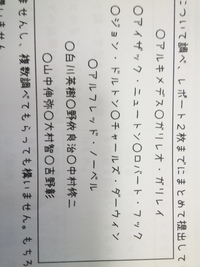 について調べ、レポート2枚までにまとめて提出して
〇アルキメデス〇ガリレオ・ガリレイ
〇アイザック・ニュートン〇ロバート・フック
〇ジョン・ドルトン〇チャールズ・ダーウィン
〇アルフレッド・ノーベル
〇白川英樹〇野依良治〇中村修二
〇山中伸弥〇大村智〇吉野彰
ませんし、複数調べてもらっても構いません。もちろ